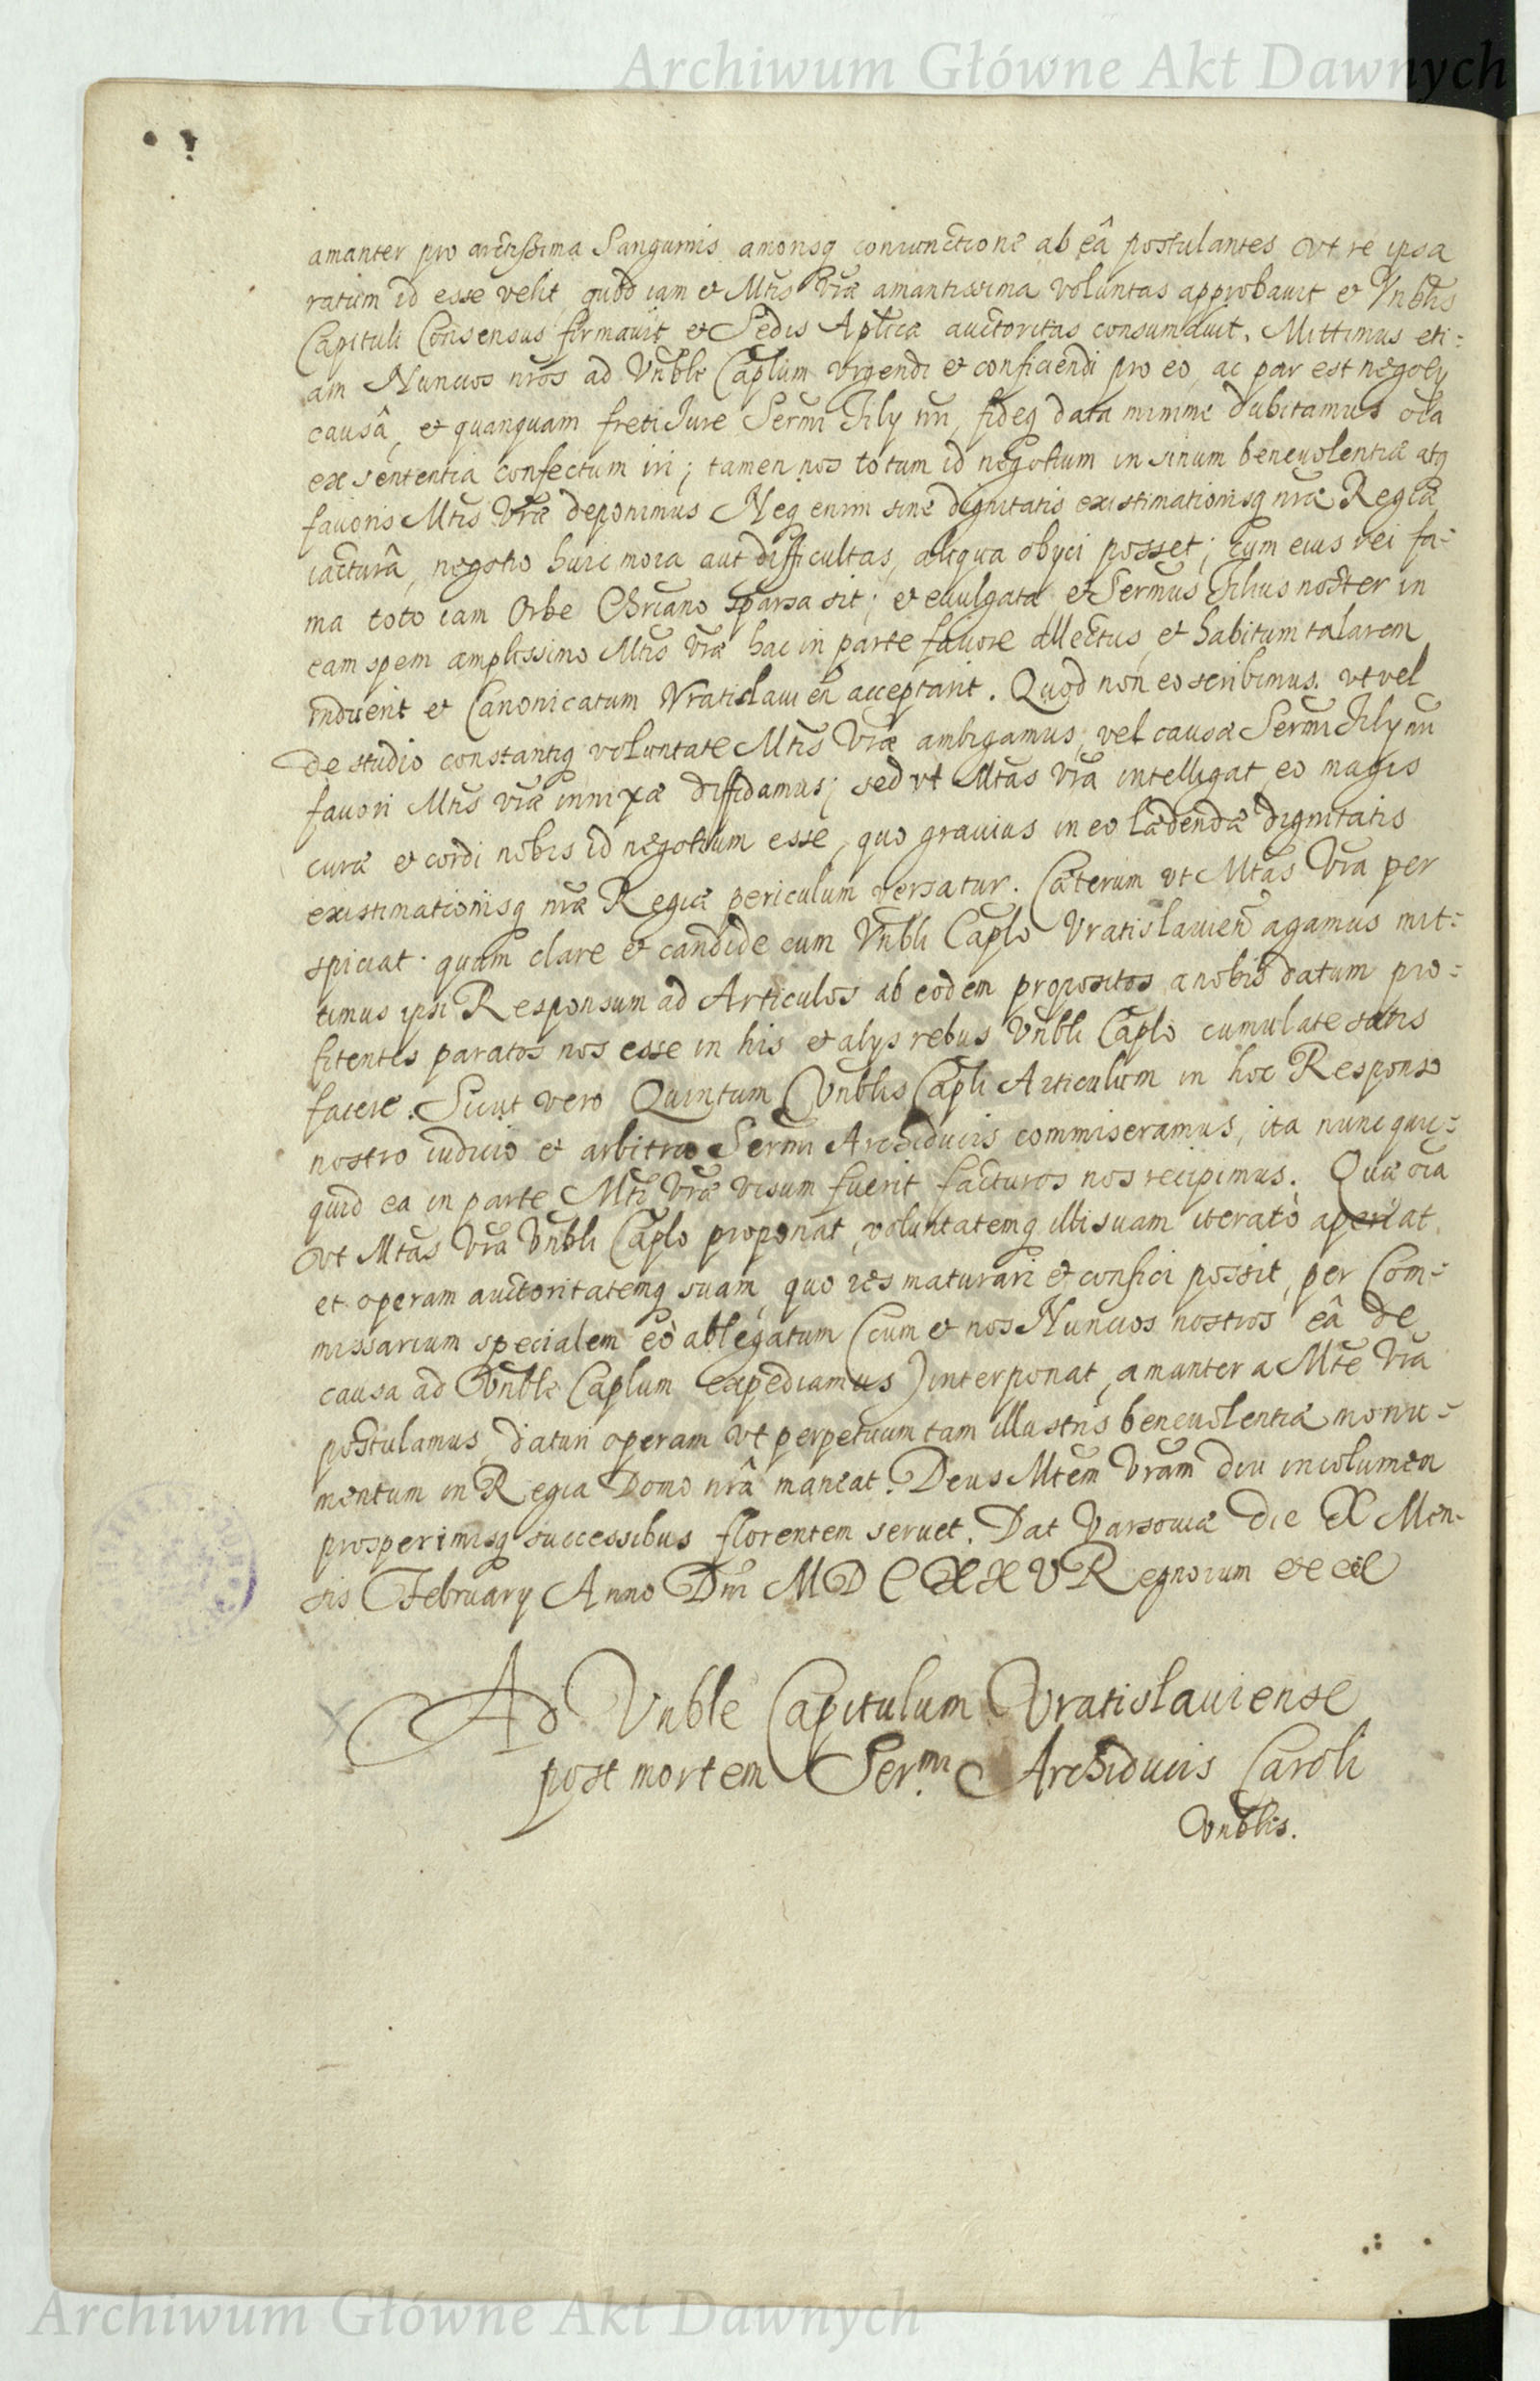 Archiwum Główne Akt Dawnych
amanter pro arctissima Sanguinis amorisq coniunctione ab eâ postulantes vt re ipsa
ratum id esse velit, quod iam et Mtis Vrae amantissima voluntas approbauit et Vnblis
Capituli Consensus firmauit et Sedis Aplicae auctoritas consumauit. Mittimus eti=
am Nuncios nros ad Vnble Caplum vrgendi et conficiendi pro eo, ac par est negoty
causâ, et quanquam freti Iure Sermi Fily nri, fideq data minime dubitamus oîa
ex sententia confectum iri; tamen nos totum id negotium in sinum beneuolentiae atq
fauoris Mtis Vrae deponimus Neq enim sine dignitatis existimationisq nrae Regiae
iacturâ, negotio huic mora aut difficultas aliqua obyci posset; Cum eius rei fa=
ma toto iam Orbe Chriano sparsa sit; et euulgata, et Sermus Filius noster in
eam spem amplissimo Mtis Vrae hac in parte fauore allectus, et habitum talarem
induerit et Canonicatum Wratislauien acceptarit. Quod non eo scribimus. vt vel
de studio constantiq voluntate Mtis Vrae ambigamus, vel causae Sermi Fily nri
fauori Mtis Vrae innixae diffidamus; sed vt Mtas Vra intelligat eo magis
curae et cordi nobis id negotium esse, quo grauius in eo laedendae dignitatis
existimationisq nrae Regiae periculum versatur. Caeterum vt Mtas Vra per
spiciat. quam clare et candide cum Vnbli Caplo Vratislauien agamus mit=
timus ipsi Responsum ad Articulos ab eodem propositos a nobis datum pro=
fitentes paratos nos esse in his et alys rebus Vnbli Caplo cumulate satis
facere. Sicut vero Quintum Vnblis Capli Articulum in hoc Responso
nostro iudicio et arbitrio Sermi Archiducis commiseramus, ita nunc quic=
quid ea in parte Mti Vrae visum fuerit facturos nos recipimus. Quae oîa
vt Mtas Vra Vnbli Caplo proponat, voluntatemq illi suam iterato aperiat
et operam auctoritatemq suam, quo res maturari et confici possit, per Com=
missarium specialem eò ablegatum (cum et nos Nuncios nostros eâ de
causa ad Vnble Caplum expediamus) interponat, amanter a Mte Vra
postulamus, daturi operam vt perpetuum tam illustris beneuolentiae monu=
mentum in Regia Domo nrâ maneat. Deus Mtem Vram diu incolumem
prosperimisq successibus florentem seruet. Dat Varsouiae die X Men-
sis February Anno Dni MDCXXV Regnorum etc etc
Ad Vnble Capitulum Vratislauiense
post mortem Ser.mi Archiducis Caroli
Vnblis.
Archiwum Główne Akt Dawnych